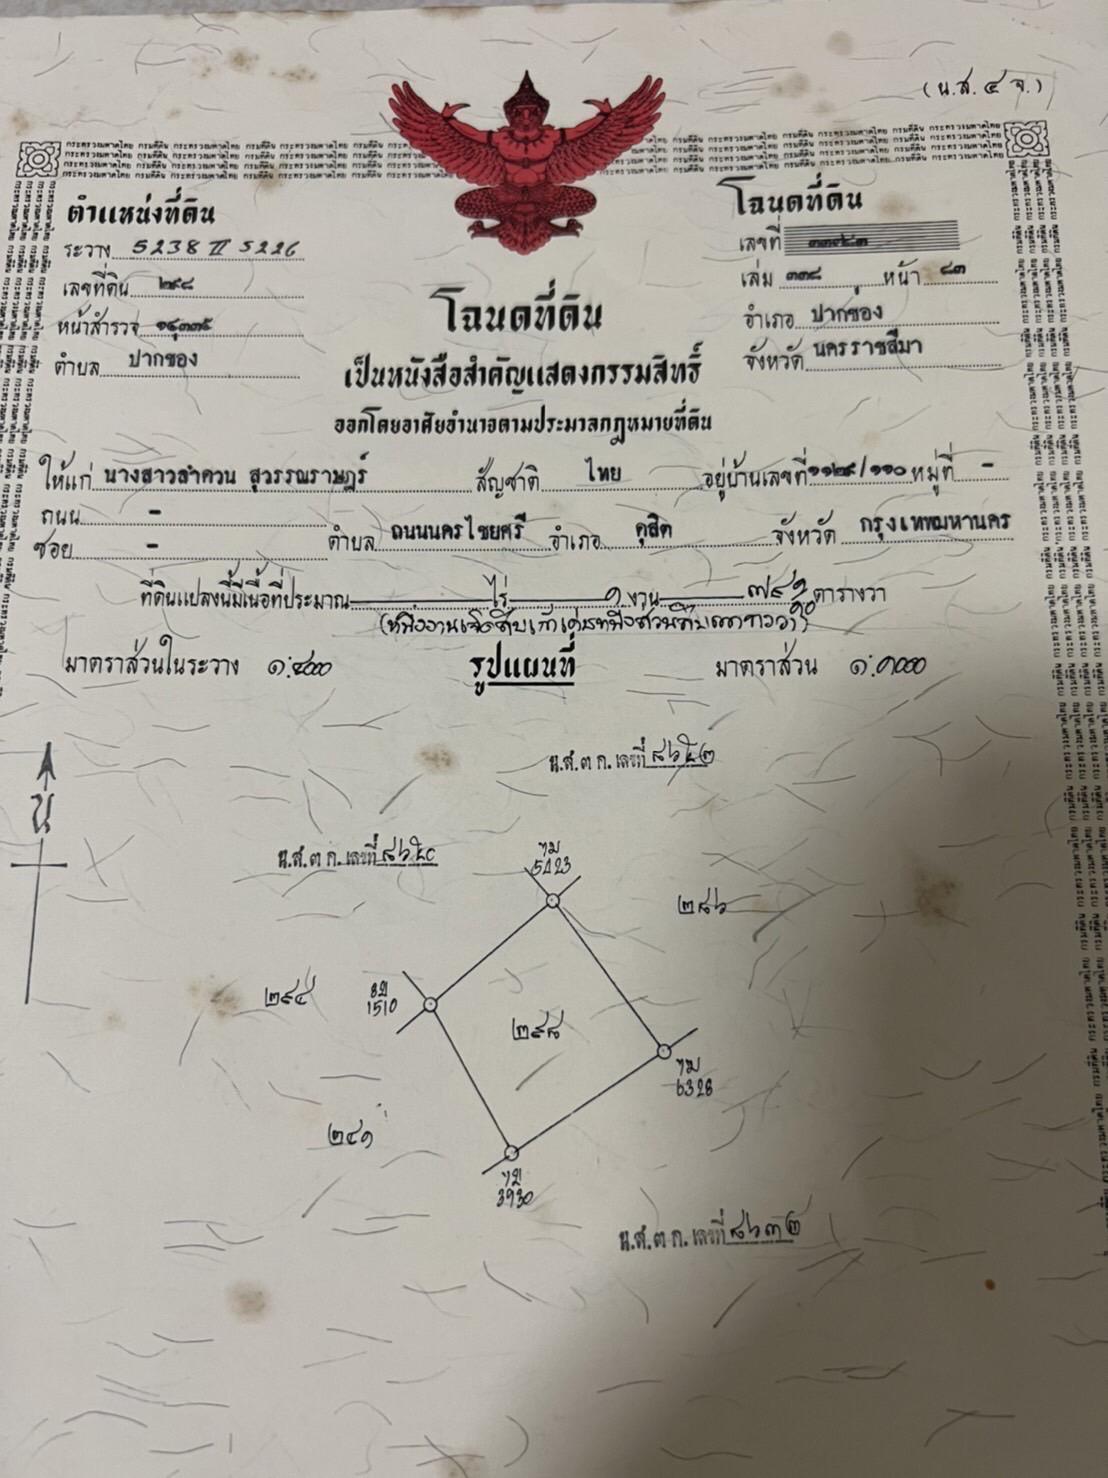 (น.ส. ๔ จ.)
ตำแหน่งที่ดิน
ระวาง 5238 II 5226
เลขที่ดิน ๒๙๘
หน้าสำรวจ
ตำบล ปากช่อง
โฉนดที่ดิน
เลขที่
เล่ม ๓๓๘ หน้า ๘๓
อำเภอ ปากช่อง
จังหวัด นครราชสีมา
โฉนดที่ดิน
เป็นหนังสือสำคัญแสดงกรรมสิทธิ์
ออกโดยอาศัยอำนาจตามประมวลกฎหมายที่ดิน
ให้แก่ นางสาวลำดวน สุวรรณราษฎร์ สัญชาติ ไทย อยู่บ้านเลขที่ ๑๑๒๙/๑๑๐ หมู่ที่ -
ถนน -
ซอย - ตำบล ถนนนครไชยศรี อำเภอ ดุสิต จังหวัด กรุงเทพมหานคร
ที่ดินแปลงนี้มีเนื้อที่ประมาณ ไร่ ๑ งาน ตารางวา
มาตราส่วนในระวาง ๑:๔๐๐๐ รูปแผนที่ มาตราส่วน ๑:๑๐๐๐
น.ส.๓ ก. เลขที่
น
น.ส.๓ ก. เลขที่
5423
๒๘๖
๒๙๔
1510
๒๙๘
6328
๒๔๑
3930
น.ส.๓ ก. เลขที่ ๘๖๓๒